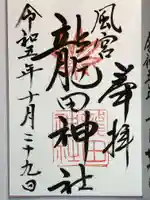 奉拝
風宮
龍田神社
令和五年十月二十九日